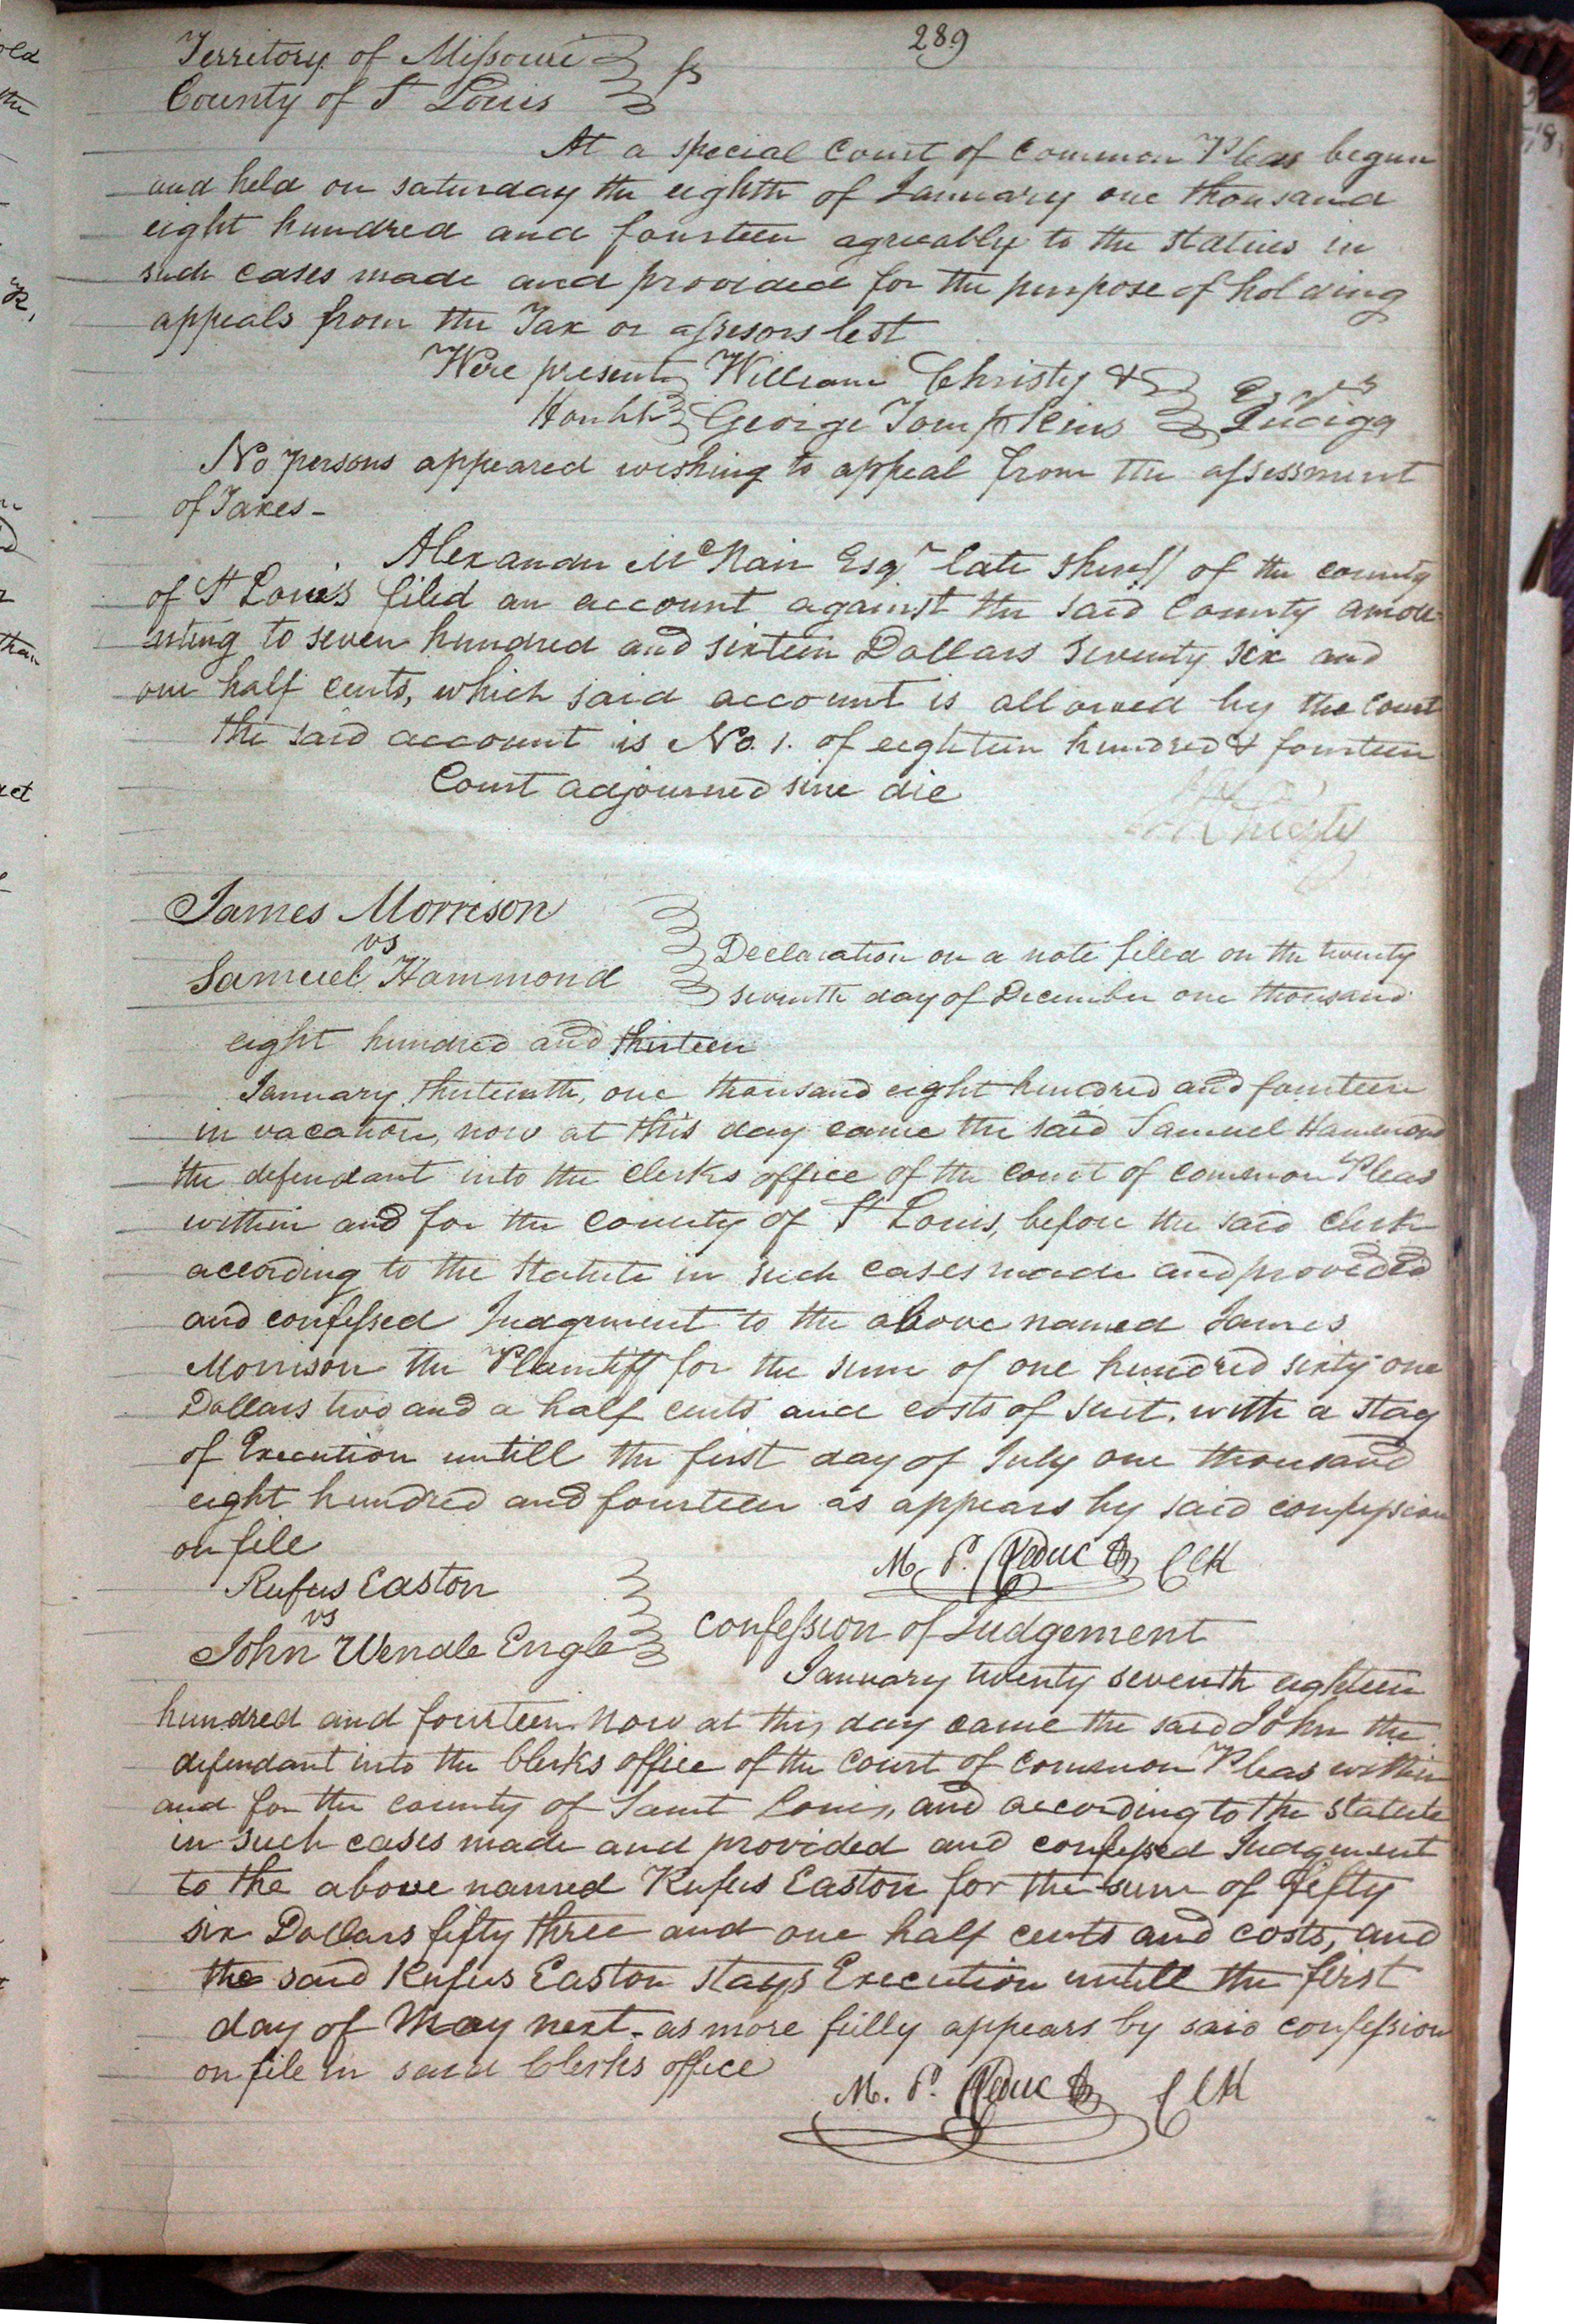 289
Territory of Missouri } ss
County of St Louis }
At a special Court of Common Pleas begun
and held on saturday the eighth of January one thousand
eight hundred and fourteen agreeably to the statues in
such cases made and provided for the purpose of holding
appeals from the Tax or assesors lest
Were present } William Christy & } Esqrs
Honble } George Tompkins }
No persons appeared wishing to appeal from the assessment
of Taxes -
Alexander McNair Esqr late sheriff of the county
of St Louis filed an account against the said County amou-
-nting to seven hundred and sixteen Dollars seventy six and
one half cents, which said account is allowed by the Court
the said account is No. 1. of eighteen hundred & fourteen
Court adjourned sine die
Christy
James Morrison
vs
Samuel Hammond
} Declaration on a note filed on the twenty
} seventh day of December one thousand
eight hundred and thirteen
January thirteenth, one thousand eight hundred and fourteen
in vacation, now at this day came the said Samuel Hammond
the defendant into the clerks office of the court of common Pleas
within and for the county of St Louis, before the said clerk
according to the statute in such cases made and provided
and confessed Judgement to the above named James
Morrison the Plaintiff for the sum of one hundred sixty one
Dollars two and a half cents and costs of suit. with a stay
of Execution untill the first day of July one thousand
eight hundred and fourteen as appears by said confession
on file
M. P. Leduc Clk
Rufus Easton
vs
John Wendle Engle
} Confession of Judgement
January twenty seventh eighteen
hundred and fourteen now at this day came the said John the
defendant into the Clerks office of the Court of common Pleas within
and for the county of Saint Louis, and according to the statute
in such cases made and provided and confessed Judgment
to the above named Rufus Easton for the sum of fifty
six Dollars fifty three and one half cents and costs, and
the said Rufus Easton stays Execution untill the first
day of May next - as more fully appears by said confession
on file in said Clerks office
M. P. Leduc Clk